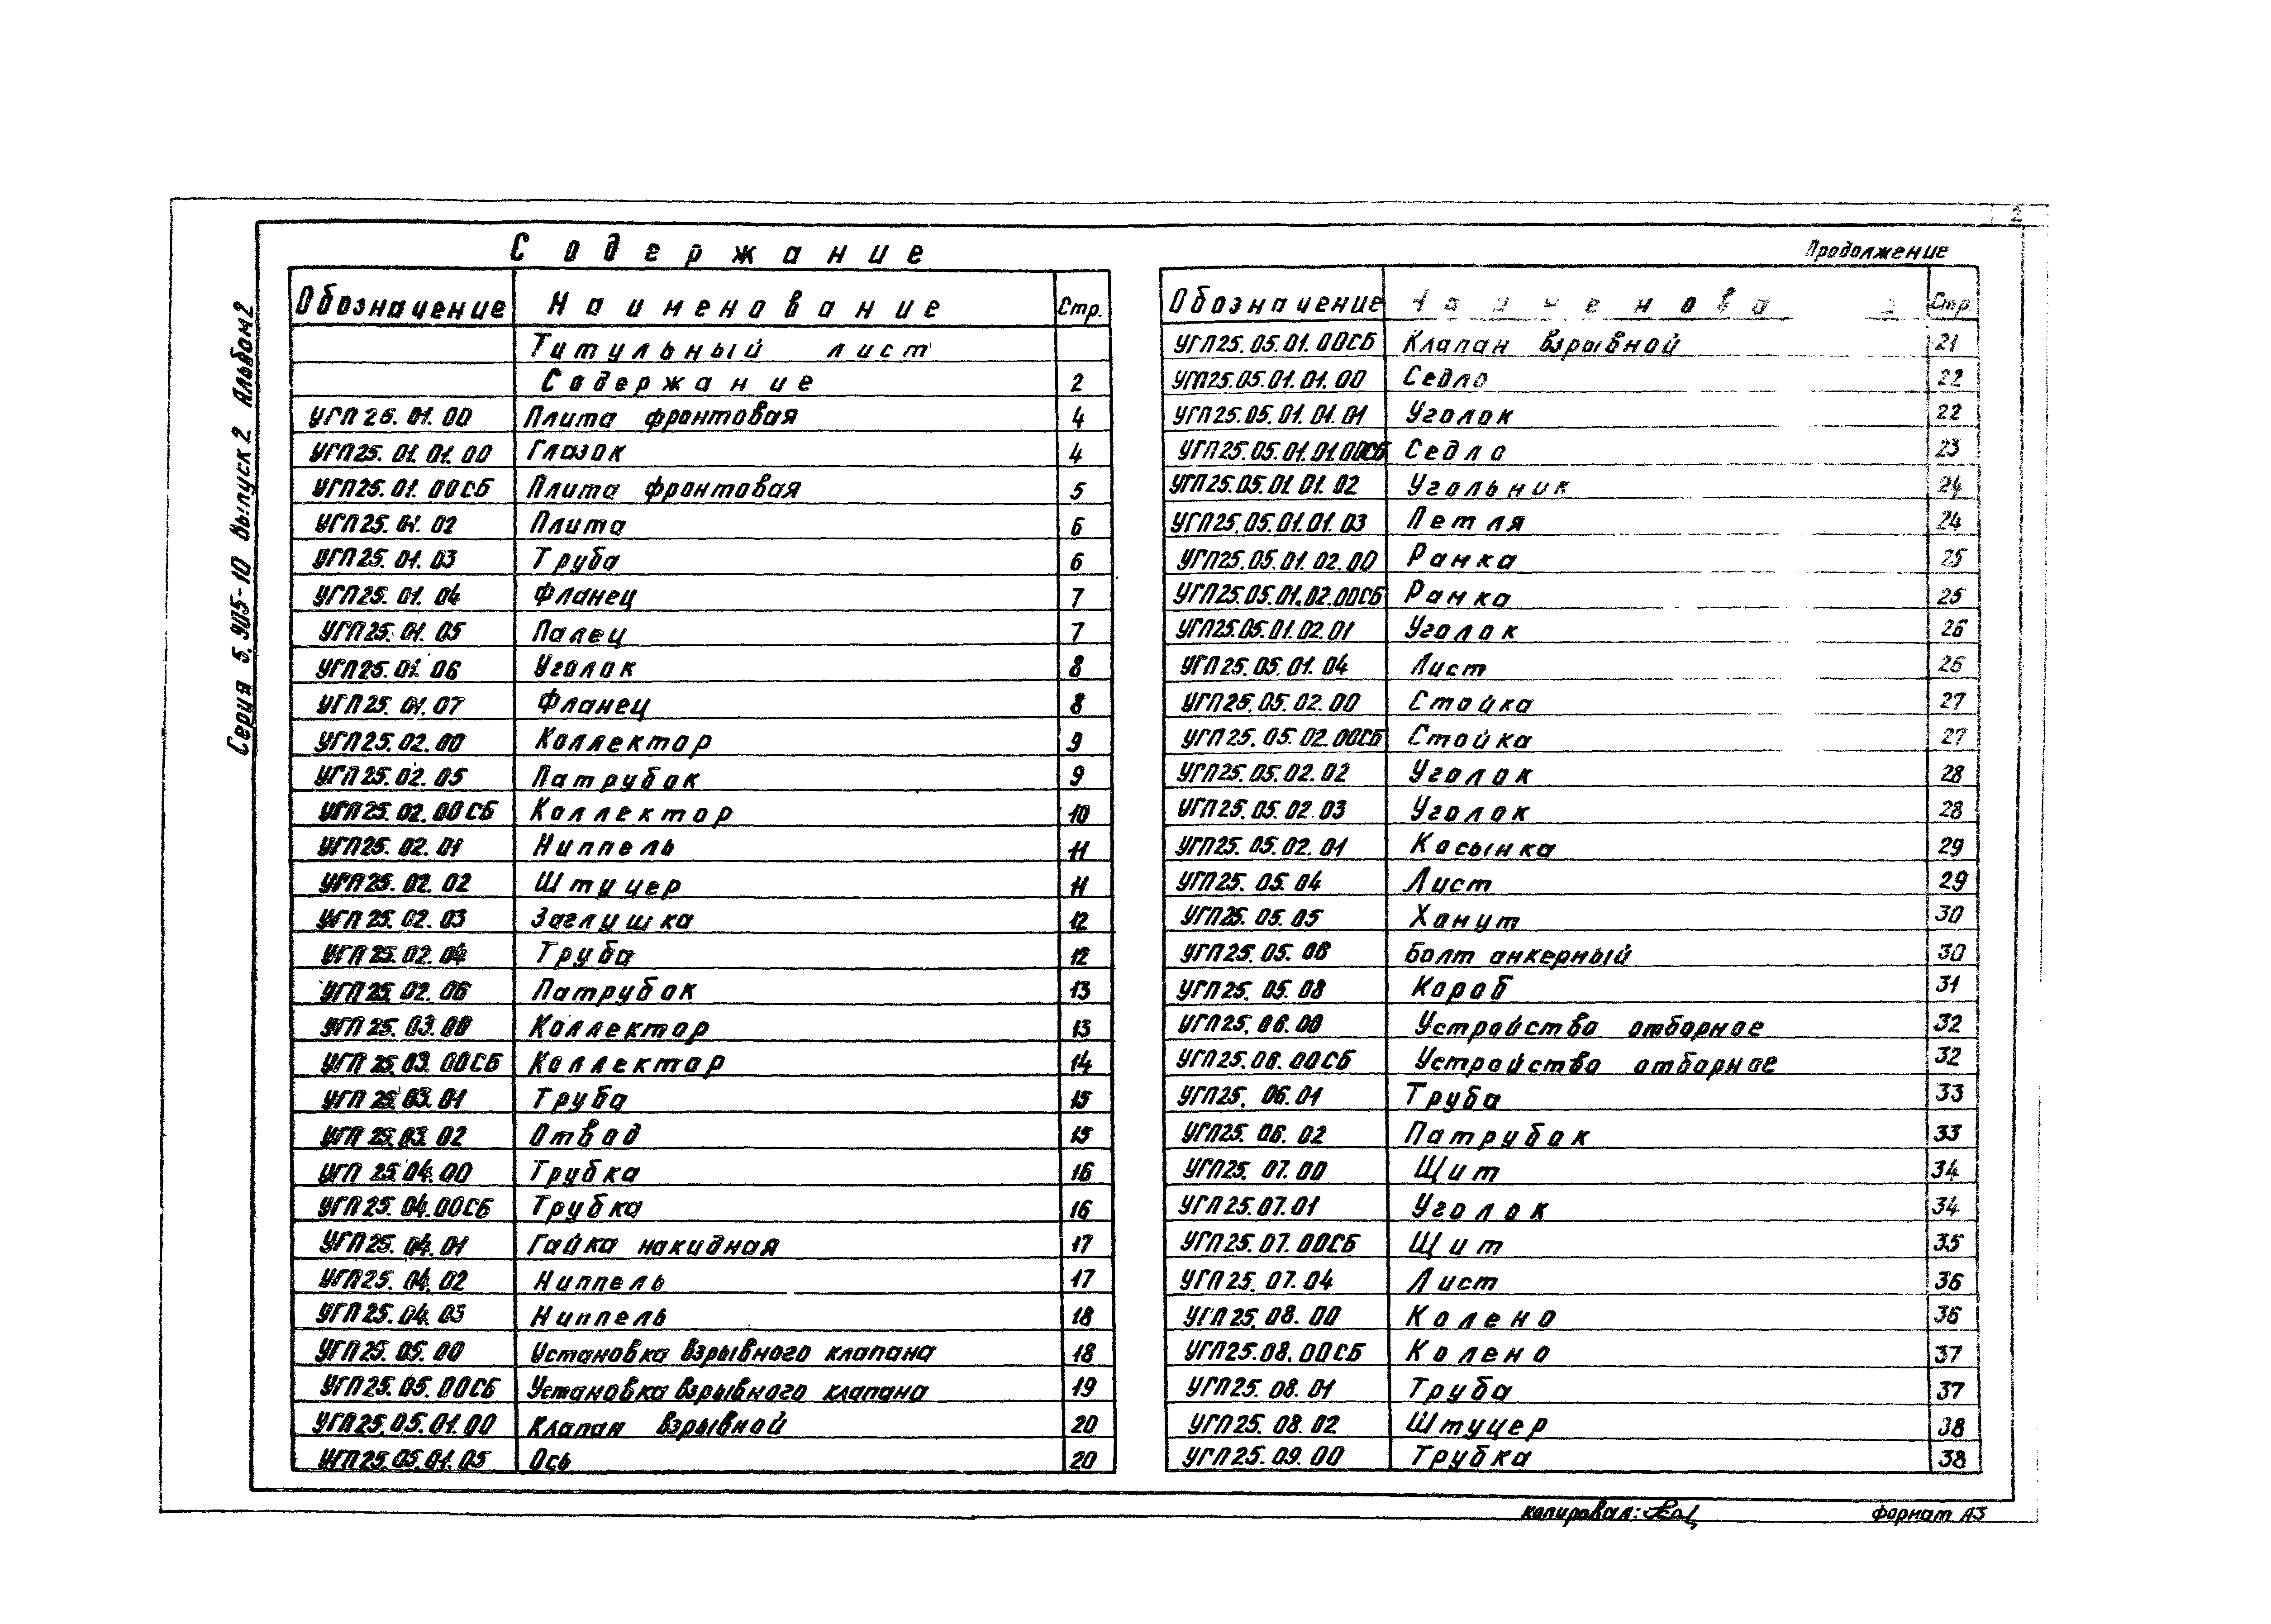 2
Серия 5.905-10 Выпуск 2 Альбом 2
Содержание
Обозначение Наименование Стр.
Титульный лист
Содержание 2
УГП 25.01.00 Плита фронтовая 4
УГП25.01.01.00 Глазок 4
УГП25.01.00СБ Плита фронтовая 5
УГП25.01.02 Плита 6
УГП25.01.03 Труба 6
УГП25.01.04 Фланец 7
УГП25.01.05 Палец 7
УГП25.01.06 Уголок 8
УГП25.01.07 Фланец 8
УГП25.02.00 Коллектор 9
УГП25.02.05 Патрубок 9
УГП25.02.00СБ Коллектор 10
УГП25.02.01 Ниппель 11
УГП25.02.02 Штуцер 11
УГП 25.02.03 Заглушка 12
УГП 25.02.04 Труба 12
УГП 25.02.06 Патрубок 13
УГП 25.03.00 Коллектор 13
УГП 25.03.00СБ Коллектор 14
УГП 25.03.01 Труба 15
УГП 25.03.02 Отвод 15
УГП 25.04.00 Трубка 16
УГП25.04.00СБ Трубка 16
УГП25.04.01 Гайка накидная 17
УГП25.04.02 Ниппель 17
УГП25.04.03 Ниппель 18
УГП25.05.00 Установка взрывного клапана 18
УГП25.05.00СБ Установка взрывного клапана 19
УГП25.05.01.00 Клапан взрывной 20
УГП25.05.01.05 Ось 20
Продолжение
Обозначение Стр.
УГП25.05.01.00СБ Клапан взрывной 21
УГП25.05.01.01.00 Седло 22
УГП25.05.01.01.01 Уголок 22
УГП25.05.01.01.00СБ Седло 23
УГП25.05.01.01.02 Угольник 24
УГП25.05.01.01.03 Петля 24
УГП25.05.01.02.00 Рамка 25
УГП25.05.01.02.00СБ Рамка 25
УГП25.05.01.02.01 Уголок 26
УГП25.05.01.04 Лист 26
УГП25.05.02.00 Стойка 27
УГП25.05.02.00СБ Стойка 27
УГП25.05.02.02 Уголок 28
УГП25.05.02.03 Уголок 28
УГП25.05.02.01 Косынка 29
УГП25.05.04 Лист 29
УГП25.05.05 Хомут 30
УГП25.05.08 Болт анкерный 30
УГП25.05.08 Короб 31
УГП25.06.00 Устройство отборное 32
УГП25.06.00СБ Устройство отборное 32
УГП25.06.01 Труба 33
УГП25.06.02 Патрубок 33
УГП25.07.00 Щит 34
УГП25.07.01 Уголок 34
УГП25.07.00СБ Щит 35
УГП25.07.04 Лист 36
УГП25.08.00 Колено 36
УГП25.08.00СБ Колено 37
УГП25.08.01 Труба 37
УГП25.08.02 Штуцер 38
УГП25.09.00 Трубка 38
копировал: формат А3